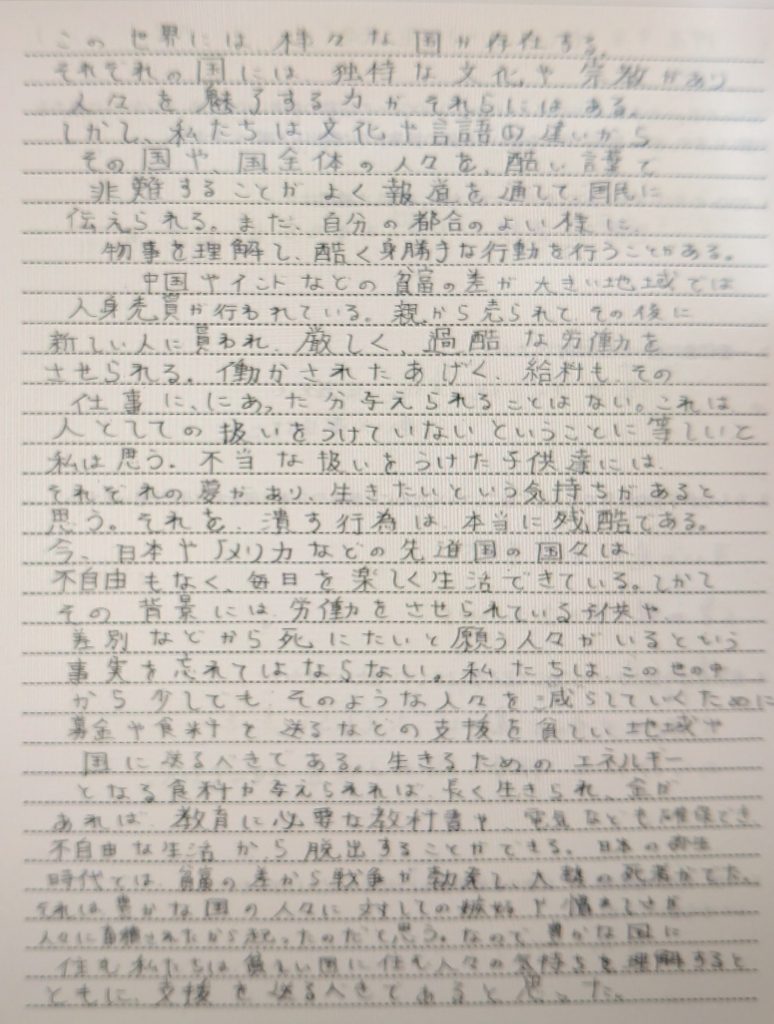 この世界には 様々な国が存在する。
それぞれの国には 独特な文化や 宗教があり
人々を魅了する力がそれらにはある。
しかし、私たちは文化や言語の違いから
その国や、国全体の人々を、酷い言葉で
非難することがよく報道を通して、国民に
伝えられる。また、自分の都合のよい様に、
物事を理解し、酷く身勝手な行動を行うことがある。
中国やインドなどの貧富の差が大きい地域では
人身売買が行われている。親から売られて、その後に
新しい人に買われ、厳しく、過酷な労働を
させられる。働かされたあげく、給料も、その
仕事に、にあった分与えられることはない。これは
人としての扱いをうけていないということに等しいと
私は思う。不当な扱いをうけた子供達には、
それぞれの夢があり、生きたいという気持ちがあると
思う。それを、潰す行為は、本当に残酷である。
今、日本やアメリカなどの先進国の国々は
不自由もなく、毎日を楽しく生活できている。しかし
その背景には、労働をさせられている子供や、
差別などから死にたいと願う人々がいるという
事実を忘れてはならない。私たちは、この世の中
から少しでも、そのような人々を減らしていくために
募金や食料を送るなどの支援を貧しい地域や
国に送るべきである。生きるためのエネルギー
となる食料が与えられれば、長く生きられ、金が
あれば、教育に必要な教科書や、電気なども確保でき
不自由な生活から脱出することができる。日本の
時代では、貧富の差から戦争が勃発し、人々の死者がでた。
それは豊かな国の人々に対しての嫉妬や憎しみが
人々に蓄積されたから起ったのだと思う。なので豊かな国に
住む私たちは貧しい国に住む人々の気持ちを理解すると
ともに、支援を送るべきであると思った。